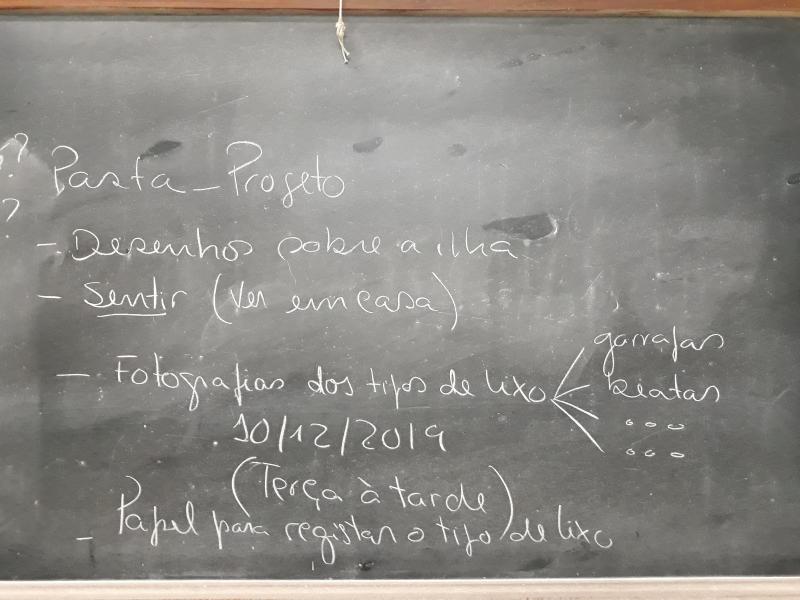 ??
Pasta - Projeto
?
- Desenhos sobre a ilha
- Sentir (Ver em casa)
- Fotografias dos tipos de lixo
garrafas
beatas
...
...
10/12/2019
(Terça à tarde)
- Papel para registar o tipo de lixo